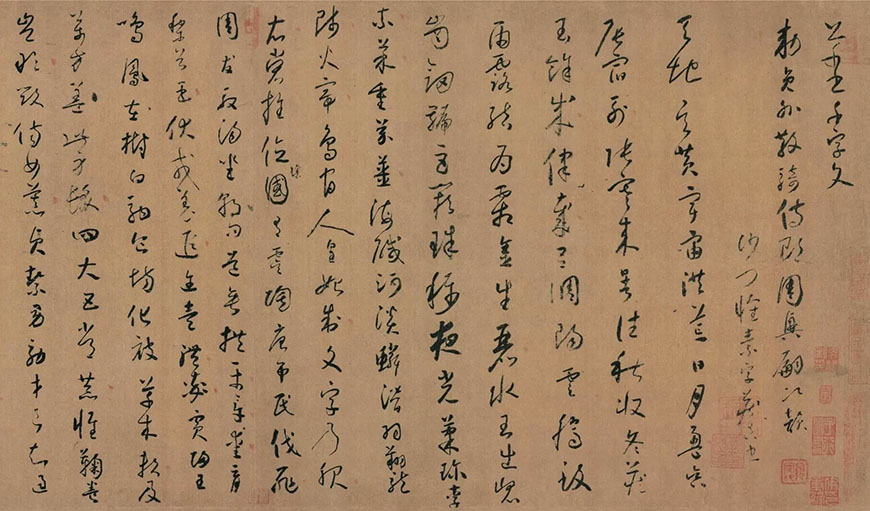 上卷千字文
勅員外散騎侍郎周興嗣次韻
沙門懷素字藏真書
天地玄黃宇宙洪荒日月盈昃
辰宿列張寒來暑往秋收冬藏
閏餘成律歲呂調陽雲騰致
雨露結為霜金生麗水玉出崐
崗劍號巨闕珠稱夜光菓珍李
柰菜重芥薑海醎河淡鱗潛羽翔龍
師火帝鳥官人皇始制文字乃服
衣裳推位讓國有虞陶唐弔民伐罪
周發殷湯坐朝問道垂拱平章愛育
黎首臣伏戎羌遐邇壹體率賓歸王
鳴鳳在樹白駒食場化被草木賴及
萬方蓋此身髮四大五常恭惟鞠養
豈敢毀傷女慕貞潔男效才良知過